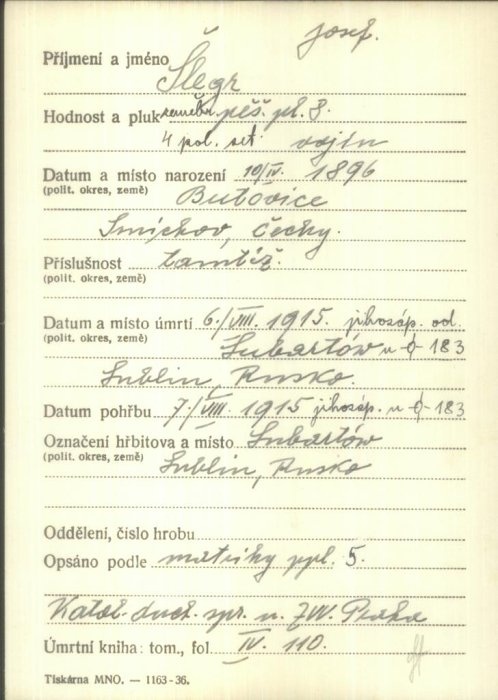 Josef.
Příjmení a jméno Šlegr
Hodnost a pluk zeměbr. pěš. pl. 8.
4 pol. set. vojín
Datum a místo narození 10/IV. 1896
(polit. okres, země) Butovice
Smíchov, Čechy.
Příslušnost tamtéž.
(polit. okres, země)
Datum a místo úmrtí 6./VIII. 1915. jihozáp. od.
(polit. okres, země) Lubartów u 183
Lublin, Rusko.
Datum pohřbu 7/VIII. 1915 jihozáp. u 183
Označení hřbitova a místo Lubartów
(polit. okres, země) Lublin, Rusko
Oddělení, číslo hrobu
Opsáno podle matriky ppl. 5.
Katol. duch. spr. u ZVV. Praha
Úmrtní kniha: tom., fol. IV. 110.
Tiskárna MNO. — 1163-36.